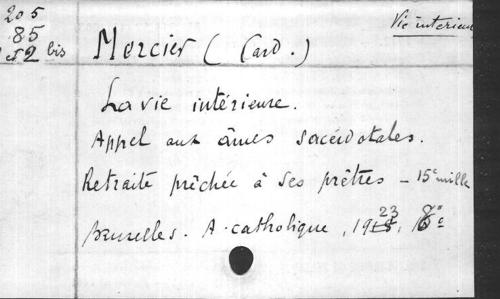 205
85
1 et 2 bis
Vie interieu
Mercier (Card.)
La vie intérieure.
Appel aux âmes sacerdotales.
Retraite prêchée à ses prêtres – 15e mille
Bruxelles. A. catholique, 1923, 8°